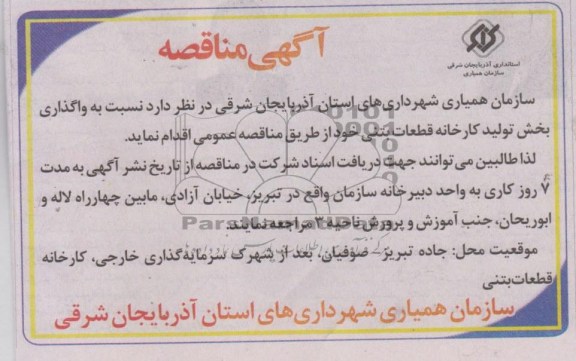 آگهی مناقصه
استانداری آذربایجان شرقی
سازمان همیاری
سازمان همیاری شهرداری‌های استان آذربایجان شرقی در نظر دارد نسبت به واگذاری
بخش تولید کارخانه قطعات‌بتنی خود از طریق مناقصه عمومی اقدام نماید.
لذا طالبین می‌توانند جهت دریافت اسناد شرکت در مناقصه از تاریخ نشر آگهی به مدت
۷ روز کاری به واحد دبیرخانه سازمان واقع در تبریز، خیابان آزادی، مابین چهارراه لاله و
ابوریحان، جنب آموزش و پرورش ناحیه ۳ مراجعه نمایند.
ParsNamadData
موقعیت محل: جاده تبریز- صوفیان، بعد از شهرک سرمایه‌گذاری خارجی، کارخانه
قطعات‌بتنی
سازمان همیاری شهرداری‌های استان آذربایجان شرقی